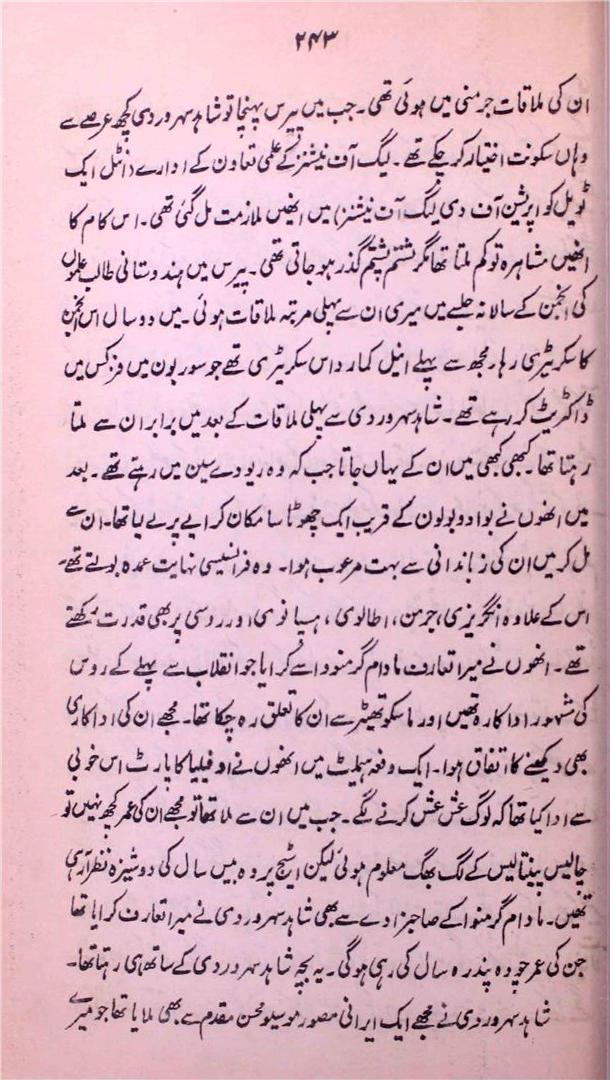 ۲۴۳
ان کی ملاقات جرمنی میں ہوئی تھی۔ جب میں پیرس پہنچا تو شاہد سہروردی کچھ عرصے سے
وہاں سکونت اختیار کر چکے تھے۔ لیگ آف نیشنز کے علمی تعاون کے ادارے (انٹل ایک
ٹویل کو اپریشن آف دی لیگ آف نیشنز) میں انھیں ملازمت مل گئی تھی۔ اس کام کا
انھیں مشاہرہ تو کم ملتا تھا مگر شتم پشتم گذر ہو جاتی تھی۔ پیرس میں ہندوستانی طالب علموں
کی انجمن کے سالانہ جلسے میں میری ان سے پہلی مرتبہ ملاقات ہوئی۔ میں دو سال اس انجمن
کا سکریٹری رہا۔ مجھ سے پہلے انیل کمار داس سکریٹری تھے جو سوربون میں فزکس میں
ڈاکٹریٹ کر رہے تھے۔ شاہد سہروردی سے پہلی ملاقات کے بعد میں برابر ان سے ملتا
رہتا تھا۔ کبھی کبھی میں ان کے یہاں جاتا جب کہ وہ ریو دے سین میں رہتے تھے۔ بعد
میں انھوں نے بوا دو بولون کے قریب ایک چھوٹا سا مکان کرایے پر لے لیا تھا۔ ان سے
مل کر میں ان کی زباندانی سے بہت مرعوب ہوا۔ وہ فرانسیسی نہایت عمدہ بولتے تھے۔
اس کے علاوہ انگریزی، جرمن، اطالوی، ہسپانوی اور روسی پر بھی قدرت رکھتے
تھے۔ انھوں نے میرا تعارف مادام گرمنووا سے کرایا جو انقلاب سے پہلے کے روس
کی مشہور اداکارہ تھیں اور ماسکو تھیٹر سے ان کا تعلق رہ چکا تھا۔ مجھے ان کی اداکاری
بھی دیکھنے کا اتفاق ہوا۔ ایک دفعہ ہیملٹ میں انھوں نے اوفیلیا کا پارٹ اس خوبی
سے ادا کیا تھا کہ لوگ عش عش کرنے لگے۔ جب میں ان سے ملا تھا تو مجھے ان کی عمر کچھ نہیں تو
چالیس پینتالیس کے لگ بھگ معلوم ہوئی لیکن اسٹیج پر وہ بیس سال کی دوشیزہ نظر آرہی
تھیں۔ مادام گرمنوا کے صاحبزادے سے بھی شاہد سہروردی نے میرا تعارف کرایا تھا
جن کی عمر چودہ پندرہ سال کی رہی ہوگی۔ یہ بچہ شاہد سہروردی کے ساتھ ہی رہتا تھا۔
شاہد سہروردی نے مجھے ایک ایرانی مصور موسیو محسن مقدم سے بھی ملایا تھا جو میرے